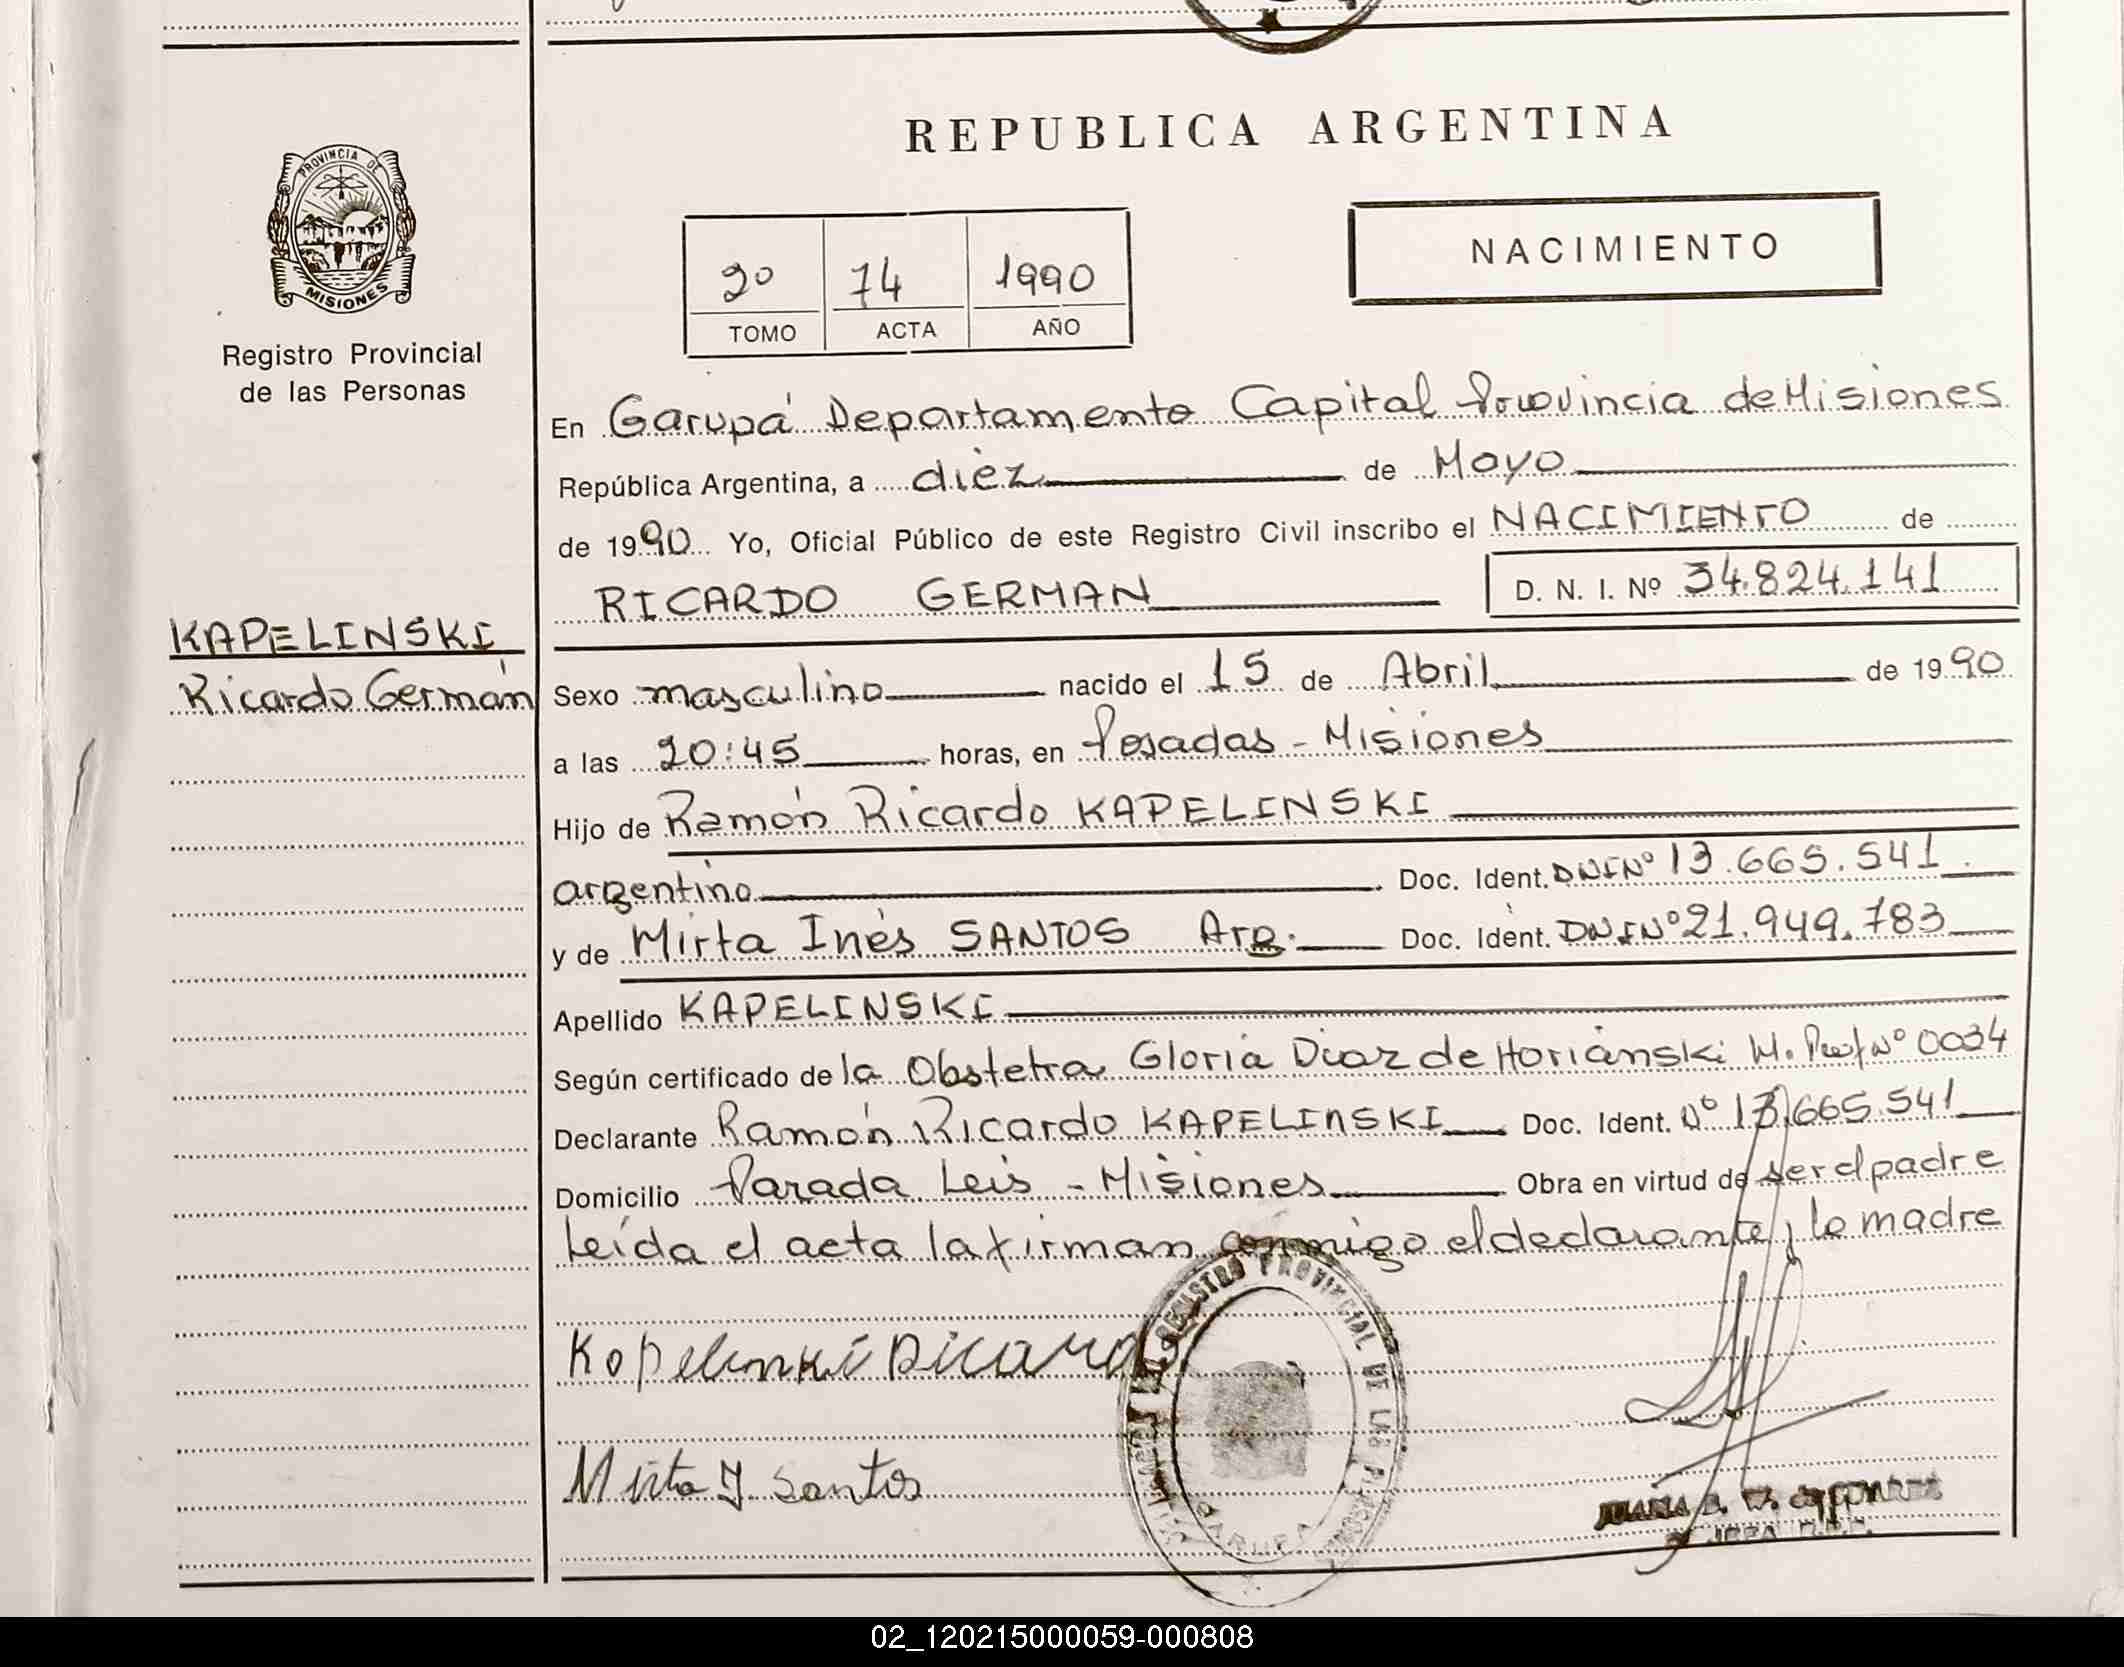 REPUBLICA ARGENTINA
PROVINCIA DE
MISIONES
Registro Provincial
de las Personas
NACIMIENTO
2º 74 1990
TOMO ACTA AÑO
En Garupá Departamento Capital Provincia de Misiones
República Argentina, a diez de Mayo
de 1990 Yo, Oficial Público de este Registro Civil inscribo el NACIMIENTO de
RICARDO GERMAN D. N. I. Nº 34.824.141
KAPELINSKI
Ricardo Germán
Sexo masculino nacido el 15 de Abril de 1990
a las 20:45 horas, en Posadas - Misiones
Hijo de Ramón Ricardo KAPELINSKI
argentino Doc. Ident. DNI Nº 13.665.541.
y de Mirta Inés SANTOS Arg. Doc. Ident. DNI Nº 21.949.783
Apellido KAPELINSKI
Según certificado de la Obstetra Gloria Diaz de Horianski M. Nº 0034
Declarante Ramón Ricardo KAPELINSKI Doc. Ident. Nº 13.665.541
Domicilio Parada Leis - Misiones Obra en virtud de ser el padre
Leída el acta la firman conmigo el declarante y la madre
REGISTRO PROVINCIAL DE LAS
GARUPA
Kapelinski Ricardo
Mirta I Santos
JUANA
02_120215000059-000808